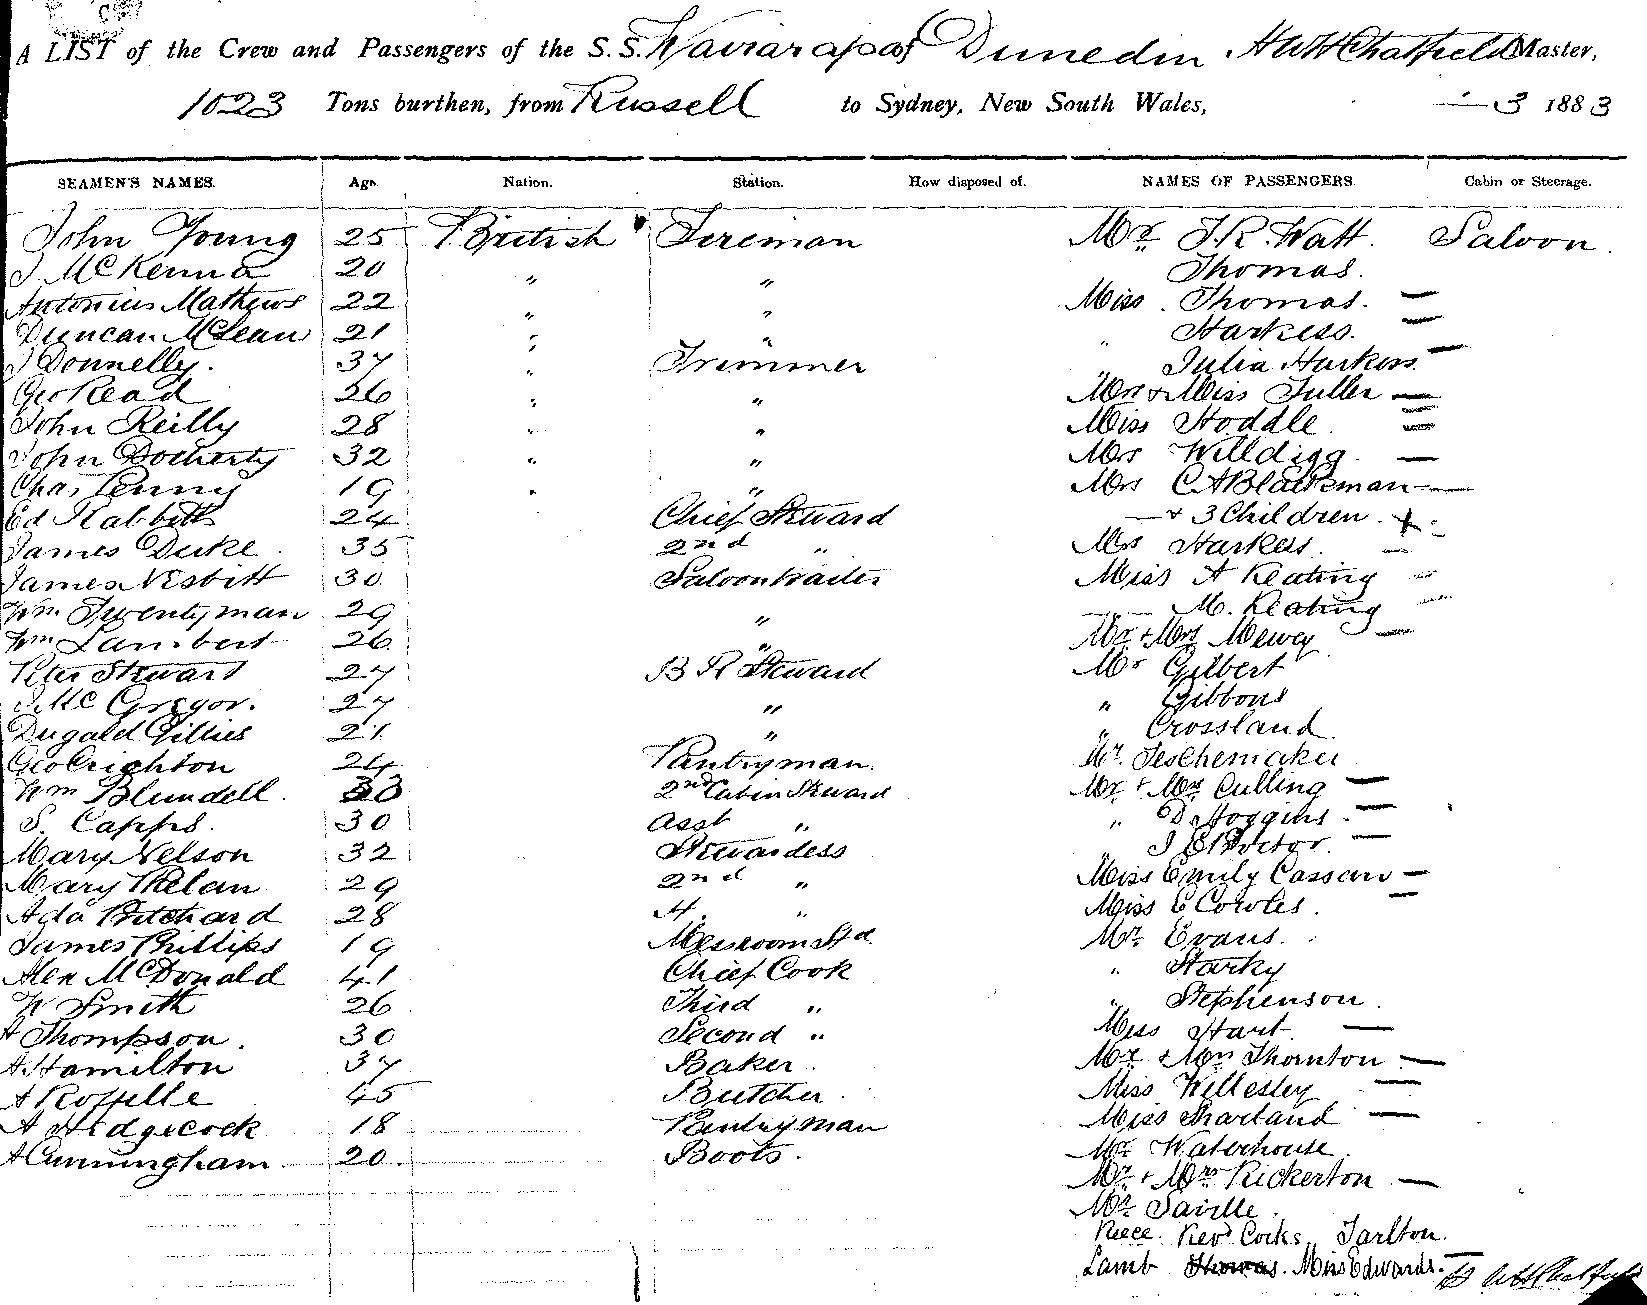 A LIST of the Crew and Passengers of the S.S. Wairarapa of Dunedin. HWH Chatfield Master,
1023 Tons burthen, from Russell to Sydney, New South Wales, 3 1883
SEAMEN'S NAMES. Age. Nation. Station. How disposed of. NAMES OF PASSENGERS. Cabin or Steerage.
John Young 25 British Fireman Mr J.R. Watt. Saloon.
J McKenna 20 " " Thomas.
Antonius Mathews 22 " " Miss Thomas. —
Duncan McLean 21 " " " Harkess. —
J Donnelly. 37 " Trimmer " Julia Harkess —
Geo Read 26 " " Mrs & Miss Fuller —
John Reilly 28 " " Miss Hoddle
John Docherty 32 " " Mrs Willdigg —
Chas Penny 19 " " Mrs C A Blackman —
Ed Rabbitt 24 Chief Steward — & 3 Children.
James Duke. 35 2nd " Mrs Harkess. —
James Nesbitt 30 Saloon Waiter Miss A Keating
Wm Twentyman 29 " — M. Keating
Wm Lambert 26 " Mr & Mrs Mewey —
Peter Steward 27 B R Steward Mr Gilbert
J. McGregor. 27 " " Gibbons
Dugald Gillies 21 " " Crossland.
Geo Crighton 24 Pantryman. Mr. Teschemaker
Wm Blundell. 33 2nd Cabin Steward Mr & Mrs Culling —
S. Capps. 30 Asst " " D. Hoggins —
Mary Nelson 32 Stewardess " J E Doctor. —
Mary Phelan 29 2nd " Miss Emily Cassan —
Ada Pritchard 28 " Miss E Cowles. —
James Phillips 19 Messroom Std. Mr. Evans.
Alex McDonald 41 Chief Cook " Starky
W Smith 26 Third " " Stephenson.
A Thompson. 30 Second " Miss Hart. —
A Hamilton 37 Baker. Mr. & Mrs Thornton —
A 45 Butcher. Miss Wellesley —
A Hedgecock 18 Pantryman Miss Sharland —
A Cunningham 20. Boots. Mr. Waterhouse.
Mr. & Mrs Rickerton —
Mr. Saville.
Reece. Revd Cocks, Tarlton.
Lamb Thomas. Miss Edwards. — HWH Chatfield